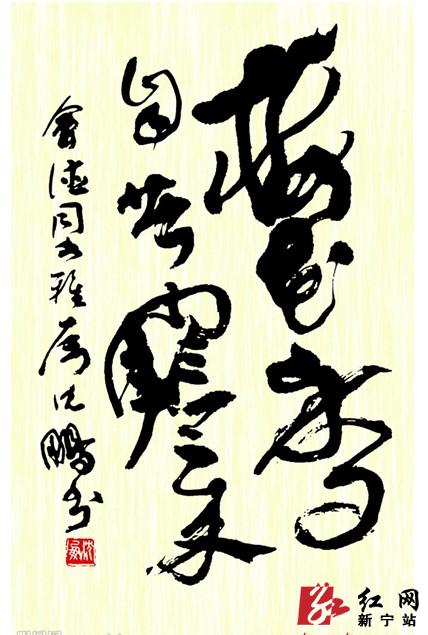 梅花香
自苦寒来
會德同志雅属沈鵬书
红网
新宁站